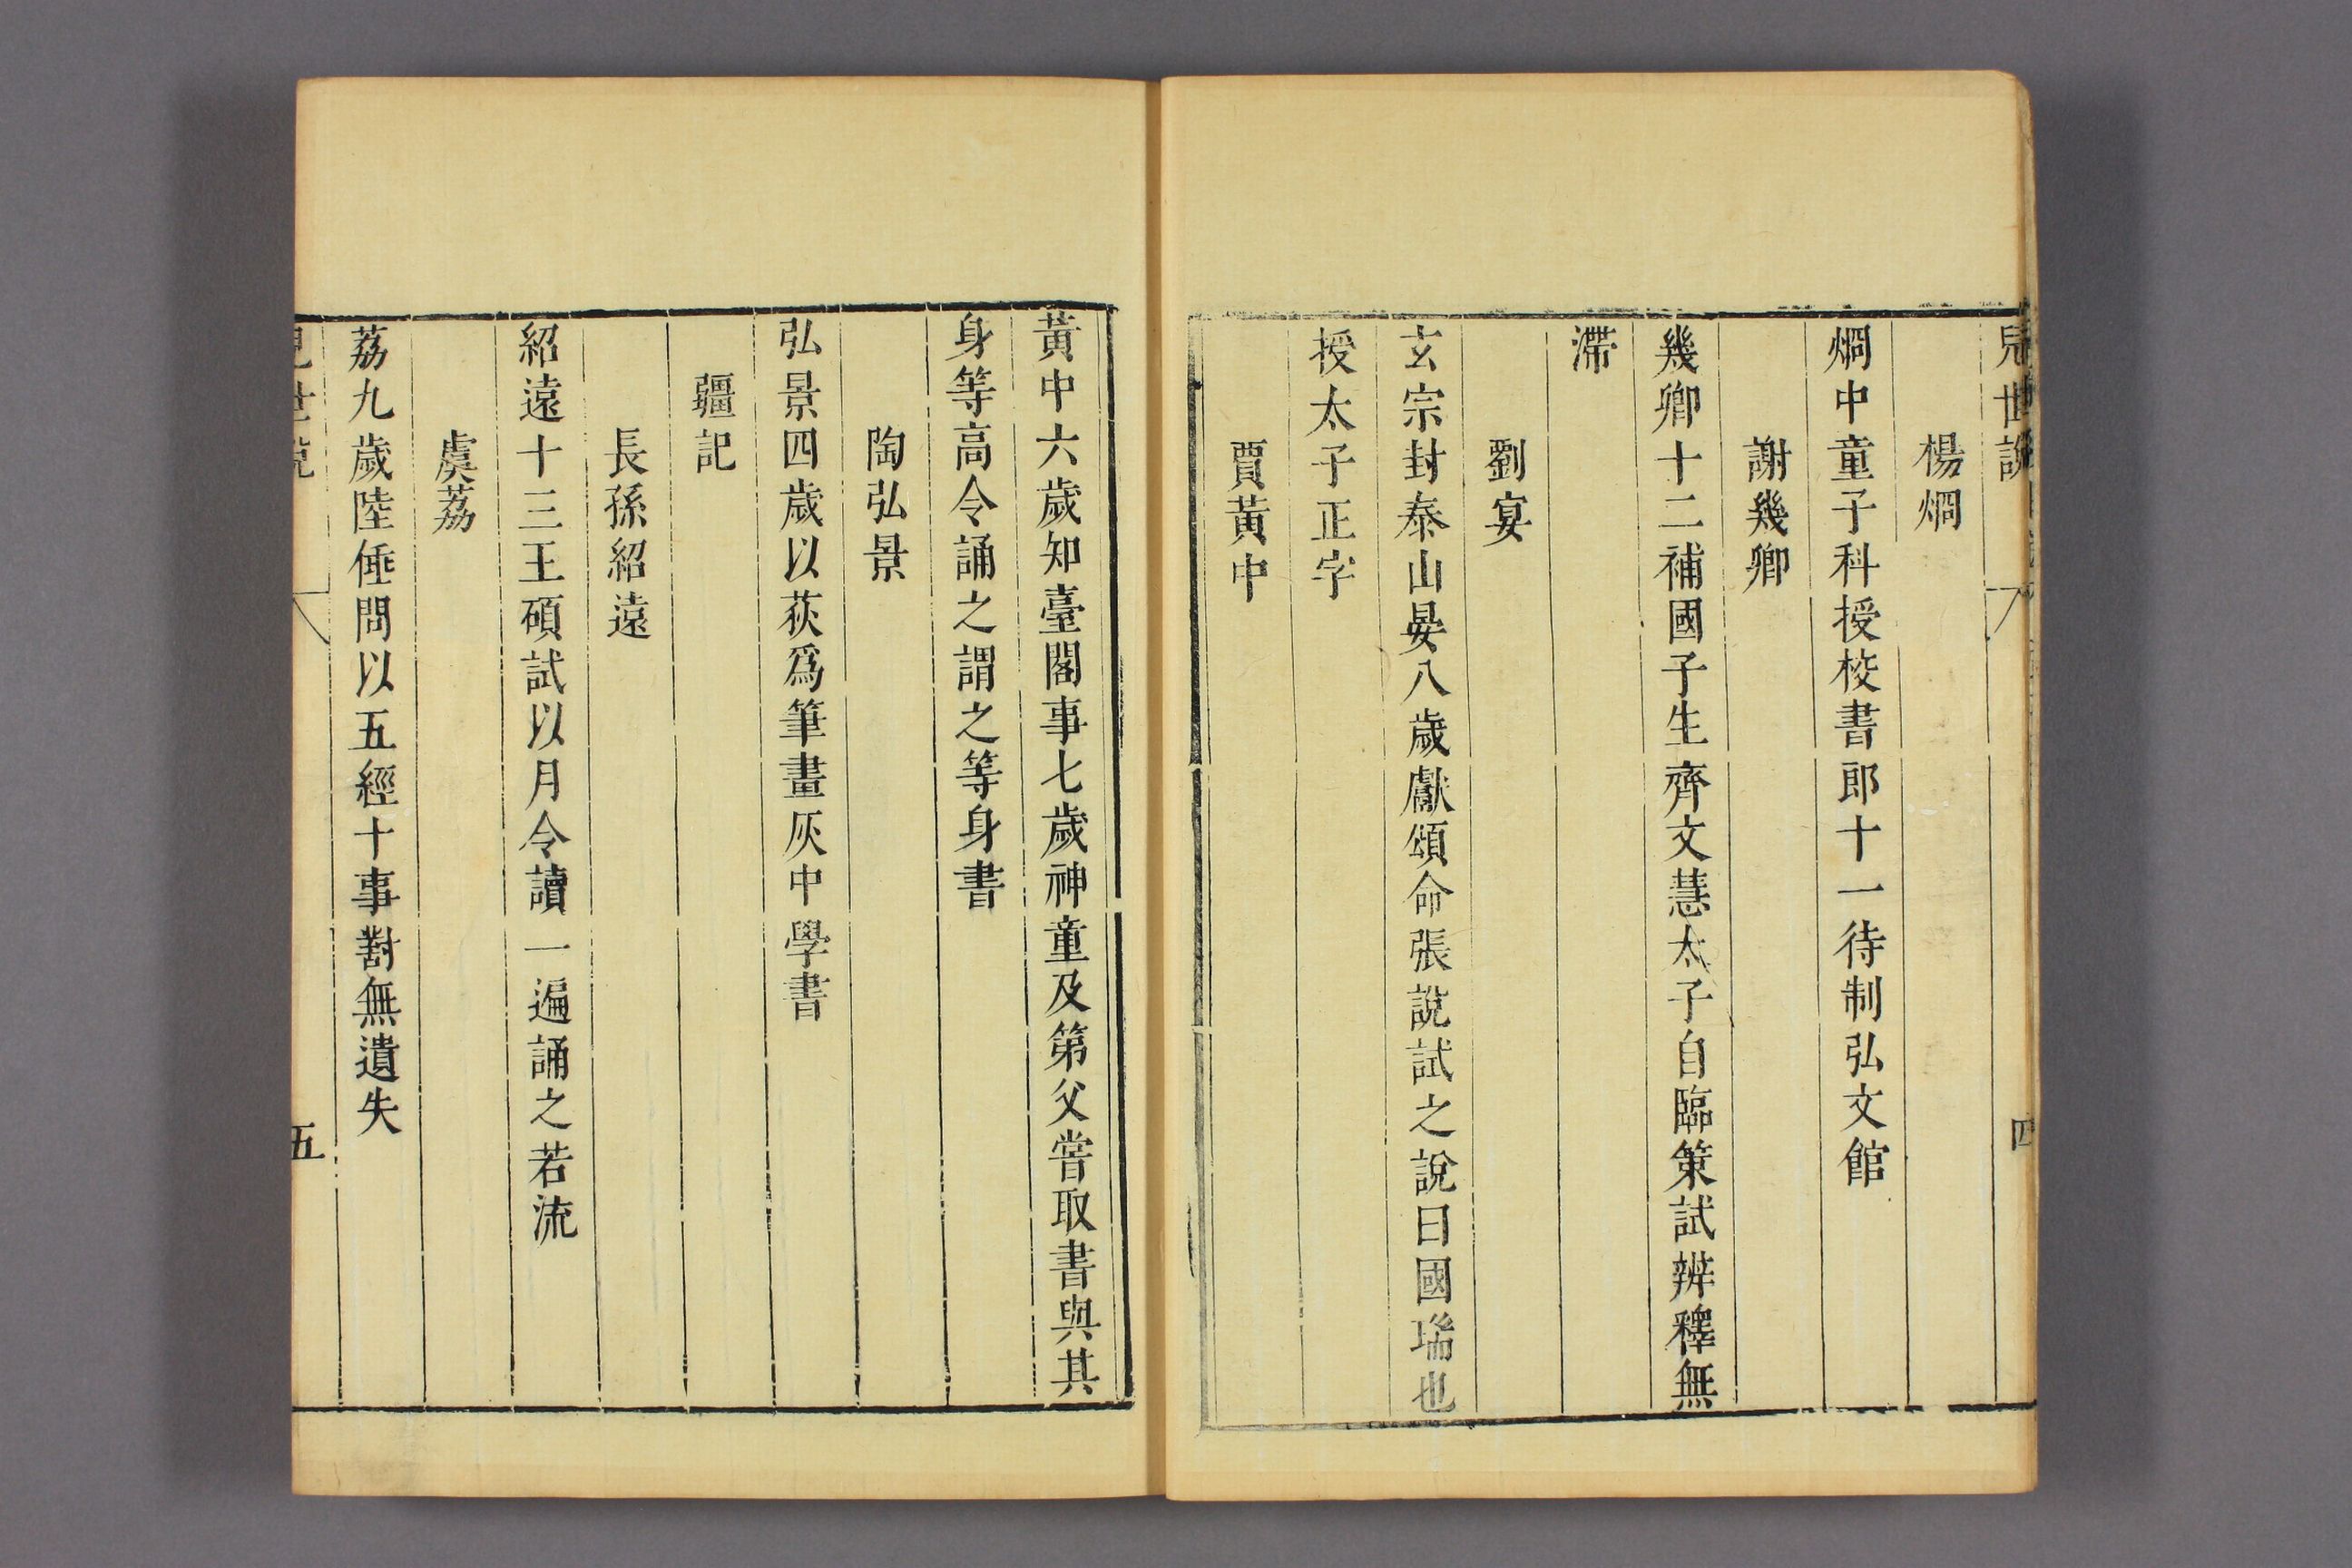 兒世說 四
楊烱
烱中童子科授校書郎十一待制弘文館
謝幾卿
幾卿十二補國子生齊文慧太子自臨策試辨釋無
滯
劉宴
玄宗封泰山晏八歲獻頌命張說試之說曰國瑞也
授太子正字
賈黃中
黃中六歲知臺閣事七歲神童及第父嘗取書與其
身等高令誦之謂之等身書
陶弘景
弘景四歲以荻爲筆畫灰中學書
疆記
長孫紹遠
紹遠十三王碩試以月令讀一遍誦之若流
虞荔
荔九歲陸倕問以五經十事對無遺失
兒世說 五